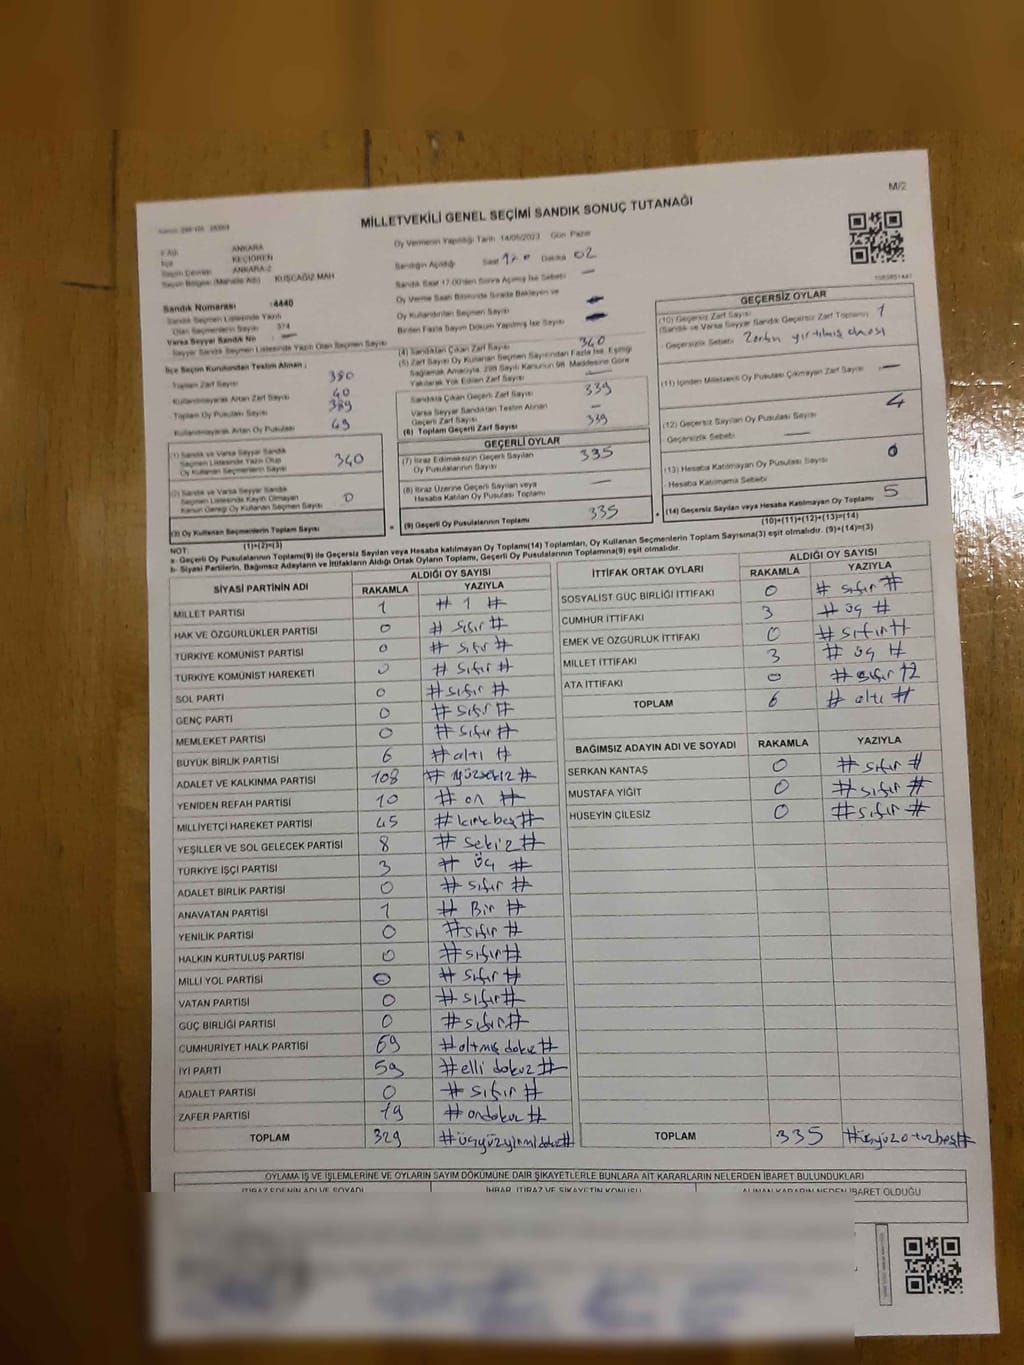 M/2
MİLLETVEKİLİ GENEL SEÇİMİ SANDIK SONUÇ TUTANAĞI
ANKARA
KEÇİÖREN
ANKARA-2
KUŞCAĞIZ MAH
Oy Vermenin Yapıldığı Tarih 14/05/2023 Gün Pazar
Sandığın Açıldığı Saat Dakika 02
Sandık Saat 17:00'den Sonra Açılmış İse Sebebi —
Oy Verme Saati Bitiminde Sırada Bekleyen ve
Oy Kullandırılan Seçmen Sayısı
Birden Fazla Sayım Döküm Yapılmış İse Sayısı
Sandık Numarası :4440
Sandık Seçmen Listesinde Yazılı
Olan Seçmenlerin Sayısı 374
Varsa Seyyar Sandık No —
Seyyar Sandık Seçmen Listesinde Yazılı Olan Seçmen Sayısı
İlçe Seçim Kurulundan Teslim Alınan ;
Toplam Zarf Sayısı 380
Kullanılmayarak Artan Zarf Sayısı 40
Toplam Oy Pusulası Sayısı 389
Kullanılmayarak Artan Oy Pusulası 49
(1) Sandık ve Varsa Seyyar Sandık
Seçmen Listesinde Yazılı Olup
Oy Kullanan Seçmenlerin Sayısı 340
(2) Sandık ve Varsa Seyyar Sandık
Seçmen Listesinde Kaydı Olmayan
Kanun Gereği Oy Kullanan Seçmen Sayısı 0
(3) Oy Kullanan Seçmenlerin Toplam Sayısı
(1)+(2)=(3)
(4) Sandıktan Çıkan Zarf Sayısı 340
(5) Zarf Sayısı Oy Kullanan Seçmen Sayısından Fazla İse, Eşitliği
Sağlamak Amacıyla, 298 Sayılı Kanunun 98. Maddesine Göre
Yakılarak Yok Edilen Zarf Sayısı —
Sandıkta Çıkan Geçerli Zarf Sayısı 339
Varsa Seyyar Sandıktan Teslim Alınan
Geçerli Zarf Sayısı —
(6) Toplam Geçerli Zarf Sayısı 339
GEÇERLİ OYLAR
(7) İtiraz Edilmeksizin Geçerli Sayılan
Oy Pusulalarının Sayısı 335
(8) İtiraz Üzerine Geçerli Sayılan veya
Hesaba Katılan Oy Pusulası Toplamı —
(9) Geçerli Oy Pusulalarının Toplamı 335
GEÇERSİZ OYLAR
(10) Geçersiz Zarf Sayısı
(Sandık ve Varsa Seyyar Sandık Geçersiz Zarf Toplamı) 1
Geçersizlik Sebebi: Zarfın yırtılmış olması
(11) İçinden Milletvekili Oy Pusulası Çıkmayan Zarf Sayısı —
(12) Geçersiz Sayılan Oy Pusulası Sayısı 4
Geçersizlik Sebebi —
(13) Hesaba Katılmayan Oy Pusulası Sayısı 0
Hesaba Katılmama Sebebi
(14) Geçersiz Sayılan veya Hesaba Katılmayan Oy Toplamı 5
(10)+(11)+(12)+(13)=(14)
NOT:
a- Geçerli Oy Pusulalarının Toplamı(9) ile Geçersiz Sayılan veya Hesaba katılmayan Oy Toplamı(14) Toplamları, Oy Kullanan Seçmenlerin Toplam Sayısına(3) eşit olmalıdır. (9)+(14)=(3)
b- Siyasi Partilerin, Bağımsız Adayların ve İttifakların Aldığı Ortak Oyların Toplamı, Geçerli Oy Pusulalarının Toplamına(9) eşit olmalıdır.
SİYASİ PARTİNİN ADI ALDIĞI OY SAYISI
RAKAMLA YAZIYLA
MİLLET PARTİSİ 1 # 1 #
HAK VE ÖZGÜRLÜKLER PARTİSİ 0 # sıfır #
TÜRKİYE KOMÜNİST PARTİSİ 0 # sıfır #
TÜRKİYE KOMÜNİST HAREKETİ 0 # sıfır #
SOL PARTİ 0 # sıfır #
GENÇ PARTİ 0 # sıfır #
MEMLEKET PARTİSİ 0 # sıfır #
BÜYÜK BİRLİK PARTİSİ 6 # altı #
ADALET VE KALKINMA PARTİSİ 108 # yüzsekiz #
YENİDEN REFAH PARTİSİ 10 # on #
MİLLİYETÇİ HAREKET PARTİSİ 45 # kırkbeş #
YEŞİLLER VE SOL GELECEK PARTİSİ 8 # sekiz #
TÜRKİYE İŞÇİ PARTİSİ 3 # üç #
ADALET BİRLİK PARTİSİ 0 # sıfır #
ANAVATAN PARTİSİ 1 # Bir #
YENİLİK PARTİSİ 0 # sıfır #
HALKIN KURTULUŞ PARTİSİ 0 # sıfır #
MİLLİ YOL PARTİSİ 0 # sıfır #
VATAN PARTİSİ 0 # sıfır #
GÜÇ BİRLİĞİ PARTİSİ 0 # sıfır #
CUMHURİYET HALK PARTİSİ 69 # altmış dokuz #
İYİ PARTİ 59 # elli dokuz #
ADALET PARTİSİ 0 # sıfır #
ZAFER PARTİSİ 19 # ondokuz #
TOPLAM 329 # üçyüzyirmidokuz #
İTTİFAK ORTAK OYLARI ALDIĞI OY SAYISI
RAKAMLA YAZIYLA
SOSYALİST GÜÇ BİRLİĞİ İTTİFAKI 0 # sıfır #
CUMHUR İTTİFAKI 3 # üç #
EMEK VE ÖZGÜRLÜK İTTİFAKI 0 # sıfır #
MİLLET İTTİFAKI 3 # üç #
ATA İTTİFAKI 0 # sıfır #
TOPLAM 6 # altı #
BAĞIMSIZ ADAYIN ADI VE SOYADI RAKAMLA YAZIYLA
SERKAN KANTAŞ 0 # sıfır #
MUSTAFA YİĞİT 0 # sıfır #
HÜSEYİN ÇİLESİZ 0 # sıfır #
TOPLAM 335 # üçyüzotuzbeş #
OYLAMA İŞ VE İŞLEMLERİNE VE OYLARIN SAYIM DÖKÜMÜNE DAİR ŞİKAYETLERLE BUNLARA AİT KARARLARIN NELERDEN İBARET BULUNDUKLARI
İTİRAZ EDENİN ADI VE SOYADI İHBAR, İTİRAZ VE ŞİKAYETİN KONUSU ALINAN KARARIN NEDEN İBARET OLDUĞU